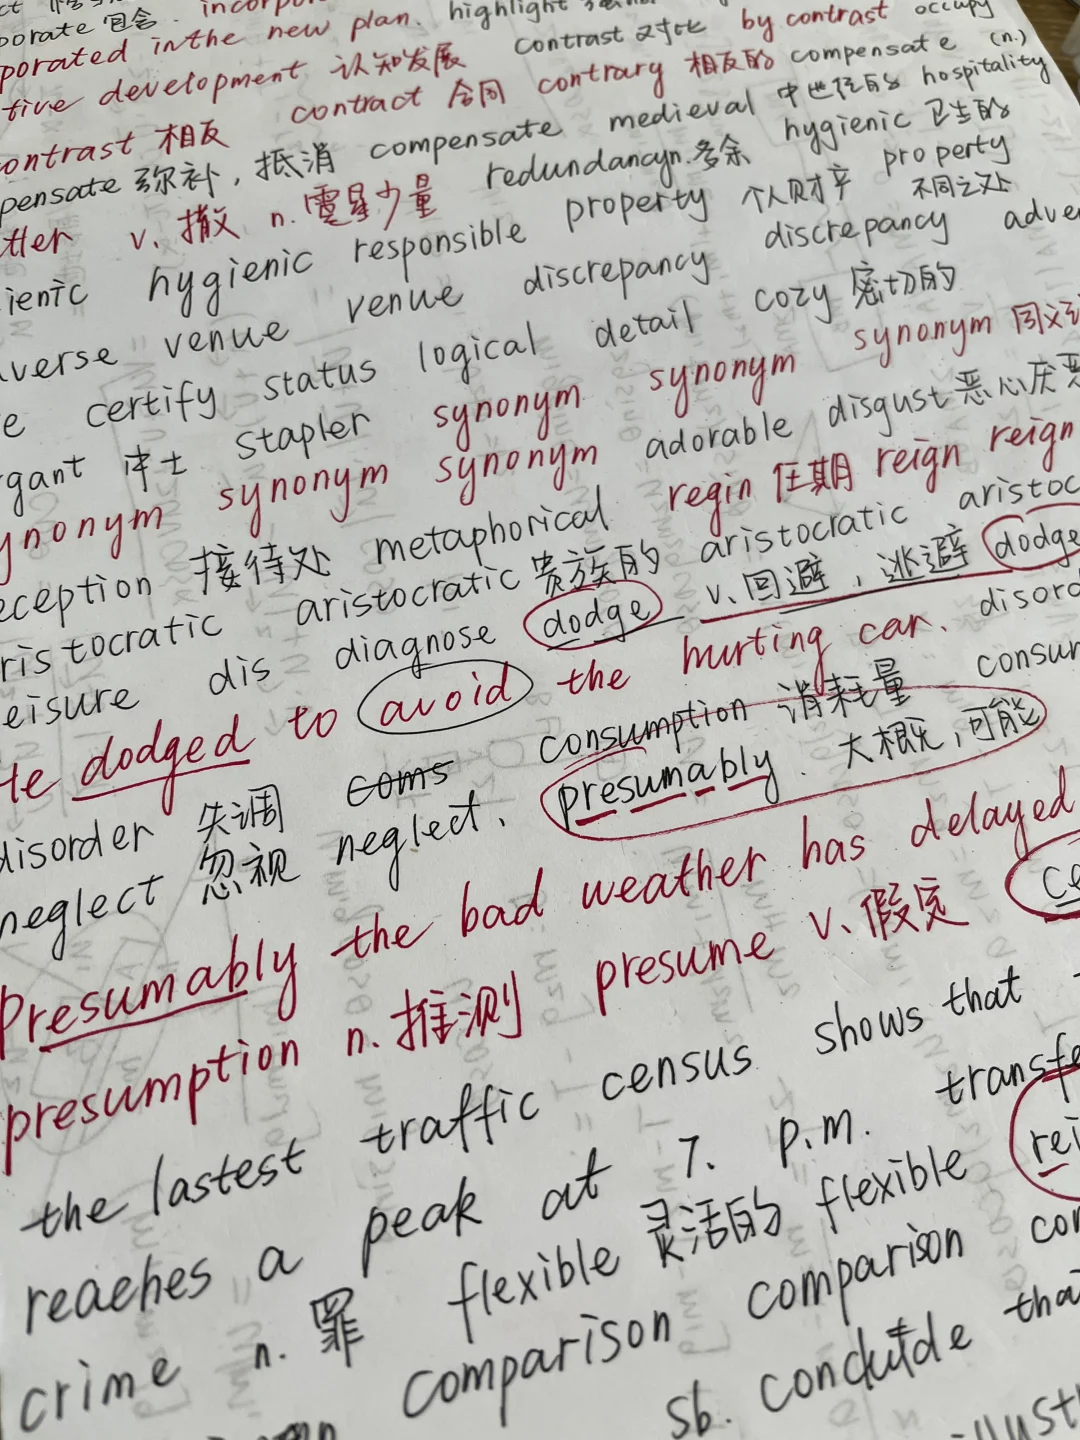 porate 包含. incorpo
porated in the new plan. highlight
tive development 认知发展 contrast 对比 by contrast occupy
ontrast 相反 contract 合同 contrary 相反的 compensate (n.)
pensate 弥补，抵消 compensate medieval 中世纪的 hospitality
ttler v. 撒 n. 零星少量 redundancy n. 多余 hygienic 卫生的
ienic hygienic responsible property 个人财产 property
verse venue venue discrepancy discrepancy 不同之处 adve
e certify status logical detail cozy 密切的
rgant 中士 stapler synonym synonym synonym 同义
ynonym synonym synonym adorable disgust 恶心厌恶
eception 接待处 metaphorical regin 任期 reign reign
ristocratic aristocratic 贵族的 aristocratic aristoc
eisure dis diagnose dodge v. 回避，逃避 dodge
te dodged to avoid the hurting car. disord
disorder 失调 coms consumption 消耗量 consum
neglect 忽视 neglect. presumably. 大概，可能
Presumably the bad weather has delayed
presumption n. 推测 presume v. 假定 ce
the lastest traffic census shows that
reaches a peak at 7. p.m. transfe
crime n. 罪 flexible 灵活的 flexible rei
comparison comparison co
sb. conclude tha
illust